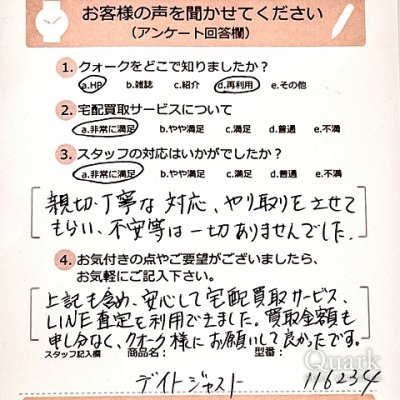 お客様の声を聞かせてください
（アンケート回答欄）
1. クォークをどこで知りましたか？
a.HP b.雑誌 c.紹介 d.再利用 e.その他
2. 宅配買取サービスについて
a.非常に満足 b.やや満足 c.満足 d.普通 e.不満
3. スタッフの対応はいかがでしたか？
a.非常に満足 b.やや満足 c.満足 d.普通 e.不満
親切・丁寧な対応、やり取りをさせて
もらい、不安等は一切ありませんでした。
4. お気付きの点やご要望がございましたら、
お気軽にご記入下さい。
上記も含め、安心して宅配買取サービス、
LINE査定を利用できました。買取金額も
申し分なく、クオーク様にお願いして良かったです。
スタッフ記入欄 商品名： 型番：
デイトジャスト 116234
Quark